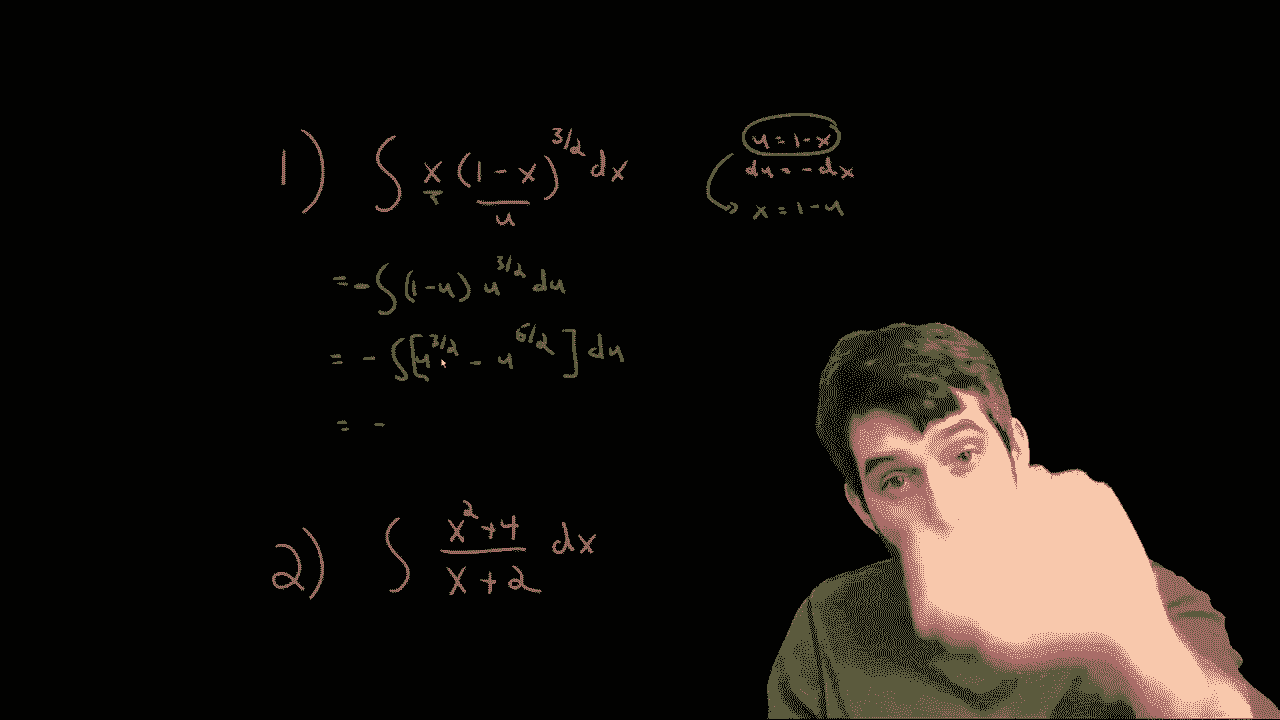 1) ∫ x (1 - x)^{3/2} dx
u
u = 1 - x
du = - dx
x = 1 - u
= - ∫ (1 - u) u^{3/2} du
= - ∫ [u^{3/2} - u^{6/2}] du
= -
2) ∫ \frac{x^2 + 4}{x + 2} dx